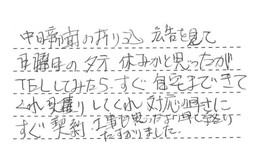 中日新聞の折り込 広告を見て
日曜日の夕方 休みかと思ったが
TELしてみたら、すぐ自宅まできて
くれ見積りしてくれ 対応の早さに
すぐ契約 工事も思ったより早く終り
たすかりました。